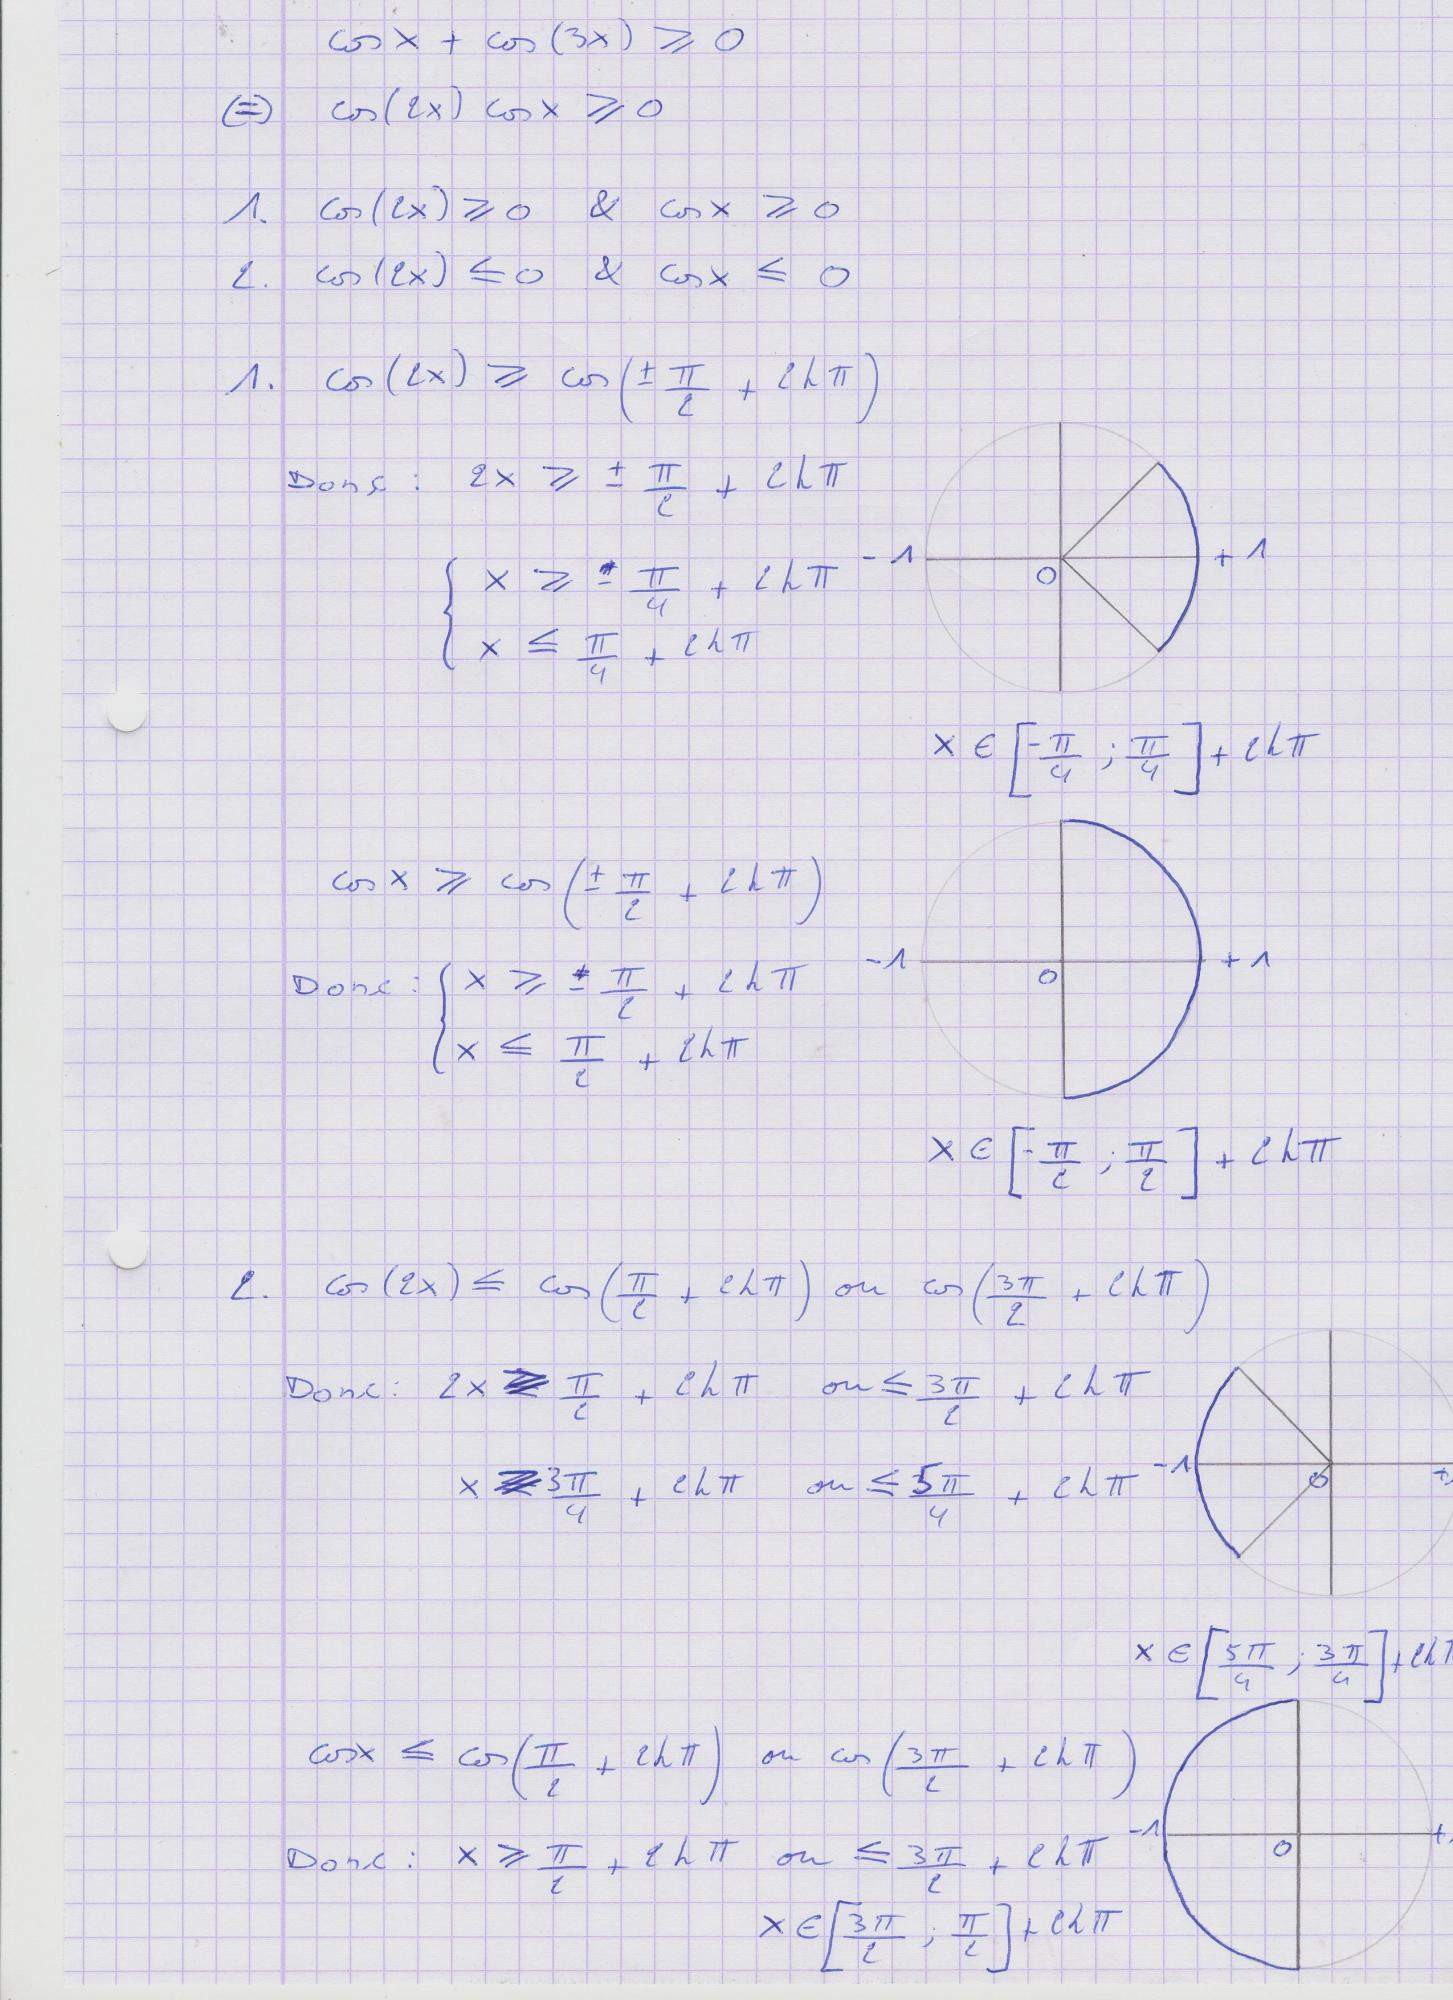 cosx + cos(3x) ⩾ 0
(=) cos(2x) cosx ⩾ 0
1. cos(2x) ⩾ 0 & cosx ⩾ 0
2. cos(2x) ≤ 0 & cosx ≤ 0
1. cos(2x) ⩾ cos(± π/2 + 2kπ)
Donc : 2x ⩾ ± π/2 + 2kπ
{ x ⩾ - π/4 + 2kπ
x ≤ π/4 + 2kπ
-1 0 +1
x ∈ [-π/4 ; π/4] + 2kπ
cosx ⩾ cos(± π/2 + 2kπ)
Donc : { x ⩾ - π/2 + 2kπ
x ≤ π/2 + 2kπ
-1 0 +1
x ∈ [-π/2 ; π/2] + 2kπ
2. cos(2x) ≤ cos(π/2 + 2kπ) ou cos(3π/2 + 2kπ)
Donc : 2x ⩾ π/2 + 2kπ ou ≤ 3π/2 + 2kπ
x ⩾ 3π/4 + 2kπ ou ≤ 5π/4 + 2kπ
-1 0 +
x ∈ [5π/4 ; 3π/4] + 2kπ
cosx ≤ cos(π/2 + 2kπ) ou cos(3π/2 + 2kπ)
Donc : x ⩾ π/2 + 2kπ ou ≤ 3π/2 + 2kπ
-1 0 +
x ∈ [3π/2 ; π/2] + 2kπ